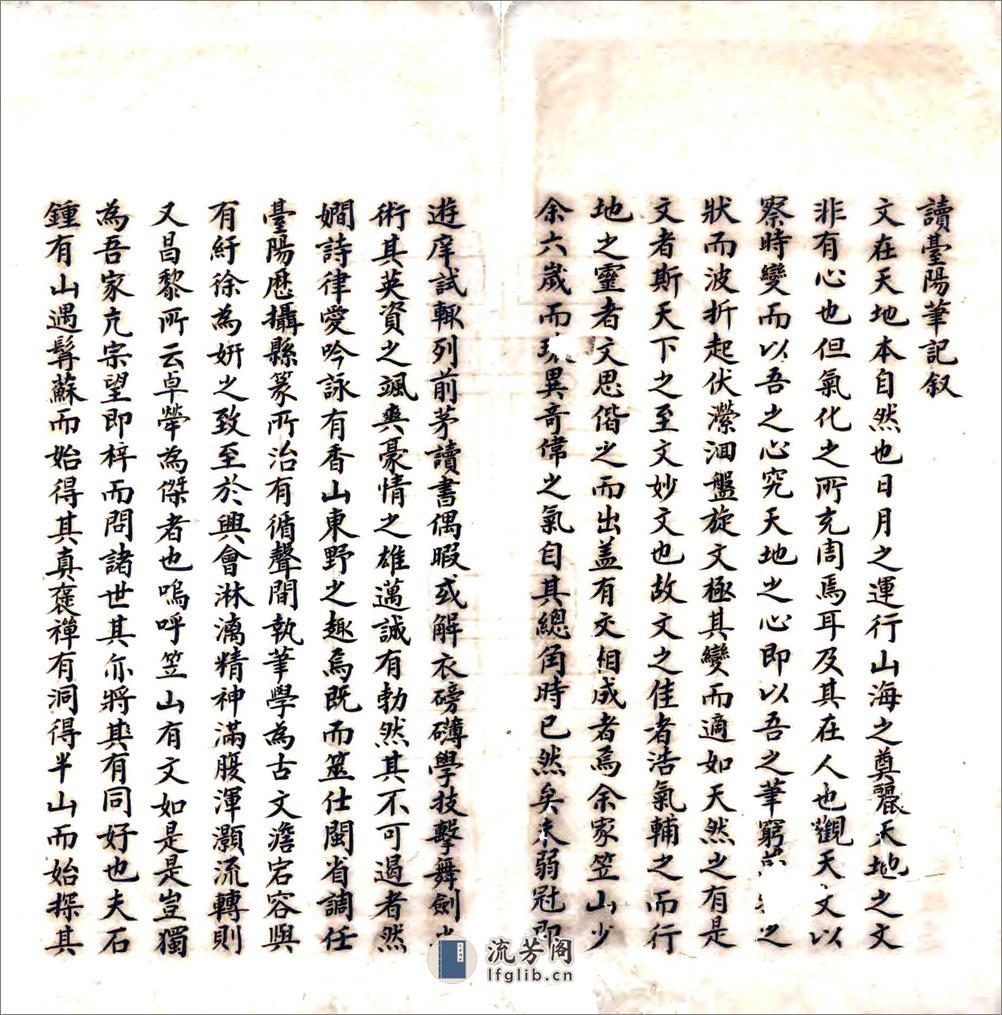 讀臺陽筆記叙
文在天地本自然也日月之運行山海之奠麗天地之文
非有心也但氣化之所充周焉耳及其在人也觀天文以
察時變而以吾之心究天地之心即以吾之筆窮之
狀而波折起伏瀠洄盤旋文極其變而適如天然之有是
文者斯天下之至文妙文也故文之佳者浩氣輔之而行
地之靈者文思偕之而出盖有交相成者焉余家笠山少
余六歲而異奇偉之氣自其總角時已然矣未弱冠即
遊庠試輙列前茅讀書偶暇或解衣磅礴學技擊舞劍
術其英資之颯爽豪情之雄邁誠有勃然其不可遏者然
嫺詩律愛吟詠有香山東野之趣焉既而筮仕閩省調任
臺陽歷攝縣篆所治有循聲閒執筆學為古文澹宕容與
有紆徐為妍之致至於興會淋漓精神滿腹渾灝流轉則
又昌黎所云卓犖為傑者也嗚呼笠山有文如是是豈獨
為吾家亢宗望即梓而問諸世其亦將其有同好也夫石
鍾有山遇髯蘇而始得其真褒禪有洞得半山而始探其
流芳阁
lfglib.cn